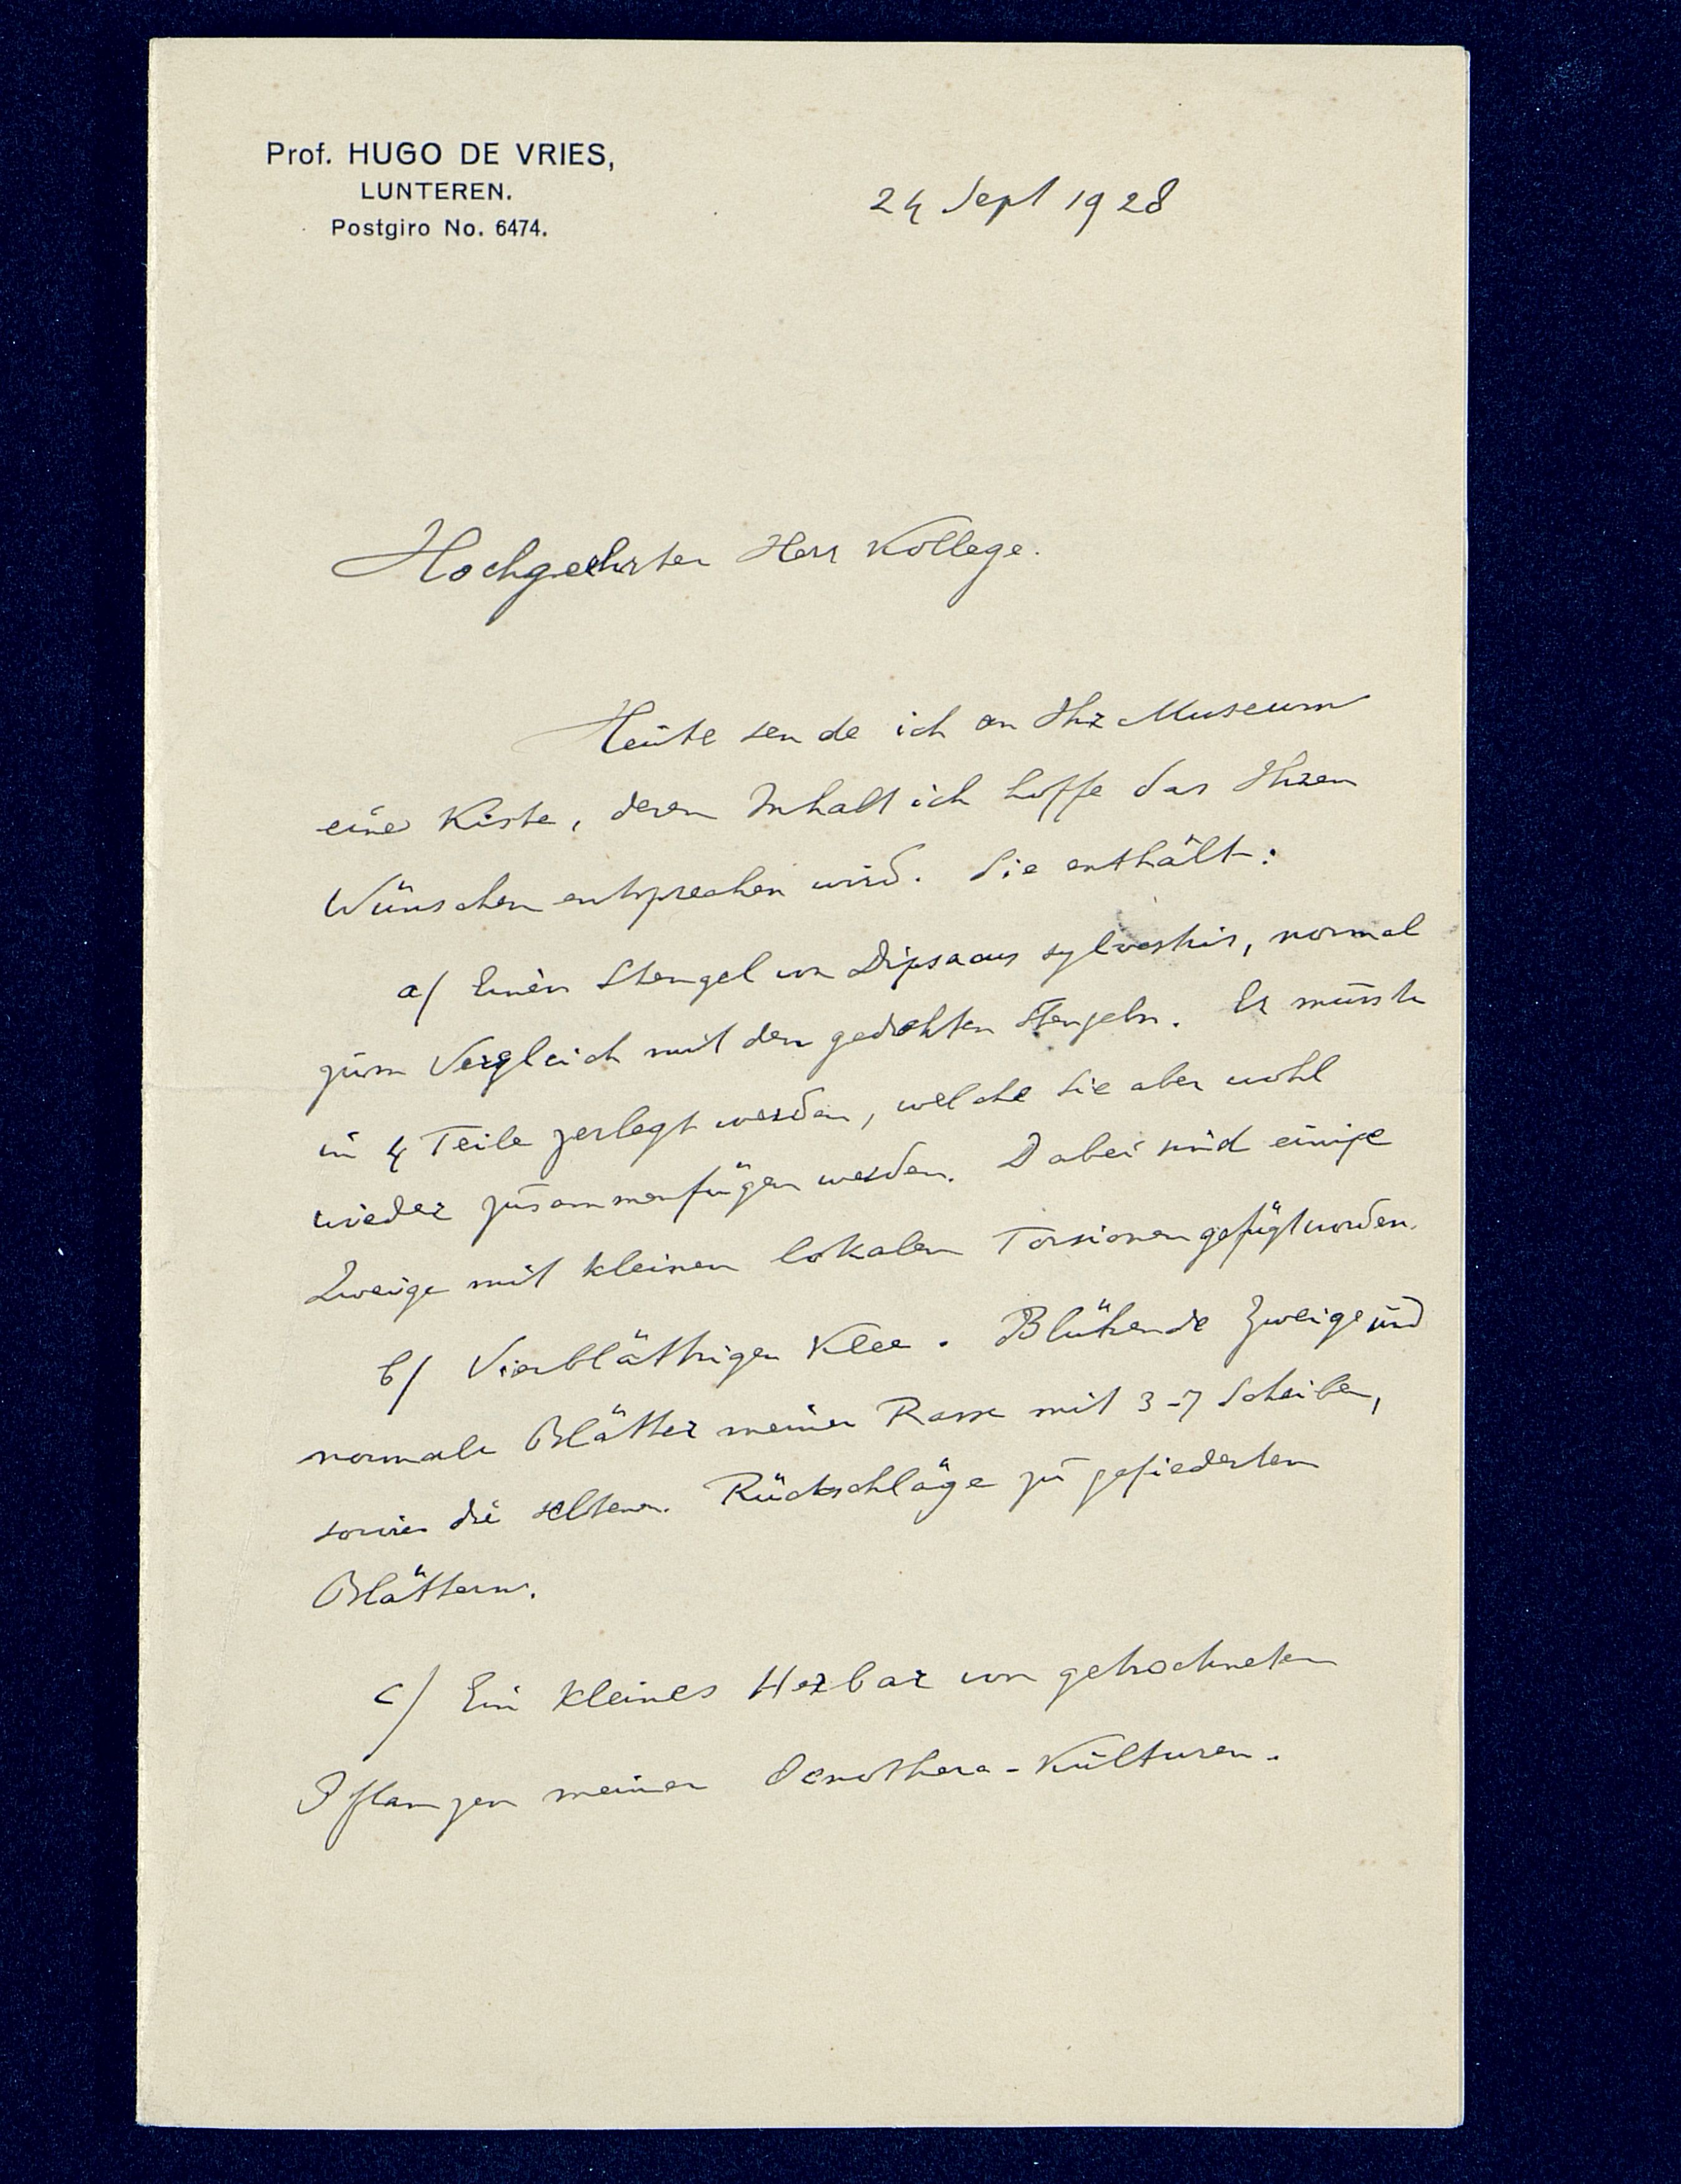 Prof. HUGO DE VRIES,
LUNTEREN.
Postgiro No. 6474.
24 Sept 1928
Hochgeehrter Herr Kollege.
Heute sende ich an Ihr Museum
eine Kiste, deren Inhalt ich hoffe das Ihren
Wünschen entsprechen wird. Sie enthält:
a/ Einen Stengel von Dipsacus sylvestris, normal
zum Vergleich mit den gedrehten Stengeln. Er müsste
in 4 Teile zerlegt werden, welche Sie aber wohl
wieder zusammenfügen werden. Dabei sind einige
Zweige mit kleinen lokalen Torsionen gefügt worden.
b/ Vierblättrigen Klee. Blühende Zweige und
normale Blätter meiner Rasse mit 3-7 Scheiben,
sowie die seltenen. Rückschläge zu gefiederten
Blättern.
c/ Ein kleines Herbar von getrockneten
Pflanzen meiner Oenothera-Kulturen.